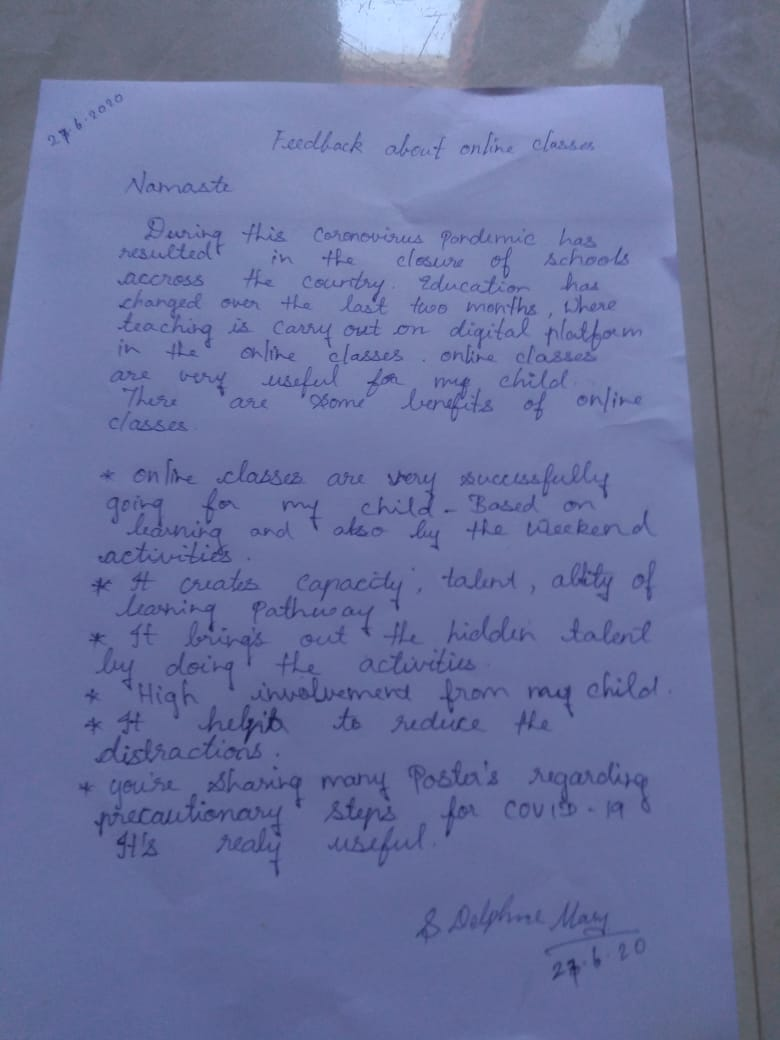 27.6.2020
Feedback about online classes
Namaste
During this Coronovirus Pandemic has
resulted in the closure of schools
accross the country. Education has
changed over the last two months, where
teaching is carry out on digital platform
in the online classes. online classes
are very useful for my child.
There are some benefits of online
classes.
* online classes are very successfully
going for my child - Based on
learning and also by the weekend
activities.
* It creates capacity, talent, ablity of
learning pathway
* It bring's out the hidden talent
by doing the activities.
* High involvement from my child.
* It helps to reduce the
distractions.
* you're sharing many Poster's regarding
precautionary steps for COVID-19
It's realy useful.
S Delphine Mary
27.6.20